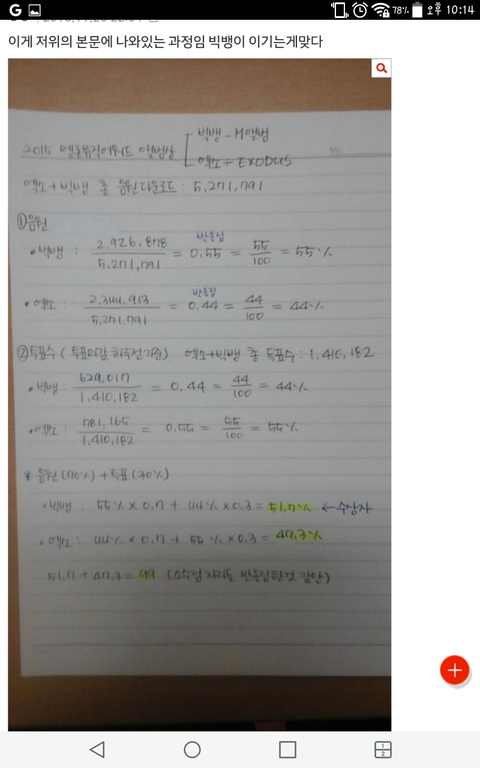 78% 오후 10:14
이게 저위의 본문에 나와있는 과정임 빅뱅이 이기는게맞다
2015 멜론뮤직어워드 앨범상
빅뱅 - M앨범
엑소 - EXODUS
엑소+빅뱅 총 음원다운로드 : 5,271,791
①음원
• 빅뱅 : 2,926,878 / 5,271,791 = 0.55 = 55/100 = 55%
반올림
• 엑소 : 2,344,913 / 5,271,791 = 0.44 = 44/100 = 44%
반올림
②득표수 ( 득표마감 하루전기준) 엑소+빅뱅 총 득표수 : 1,410,182
• 빅뱅 : 629,017 / 1,410,182 = 0.44 = 44/100 = 44%
• 엑소 : 781,165 / 1,410,182 = 0.55 = 55/100 = 55%
* 음원(70%) + 득표(30%)
• 빅뱅 : 55% × 0.7 + 44% × 0.3 = 51.7% ← 수상자
• 엑소 : 44% × 0.7 + 55% × 0.3 = 47.3%
51.7 + 47.3 = 99 (소수점 자리도 반올림한것 감안)